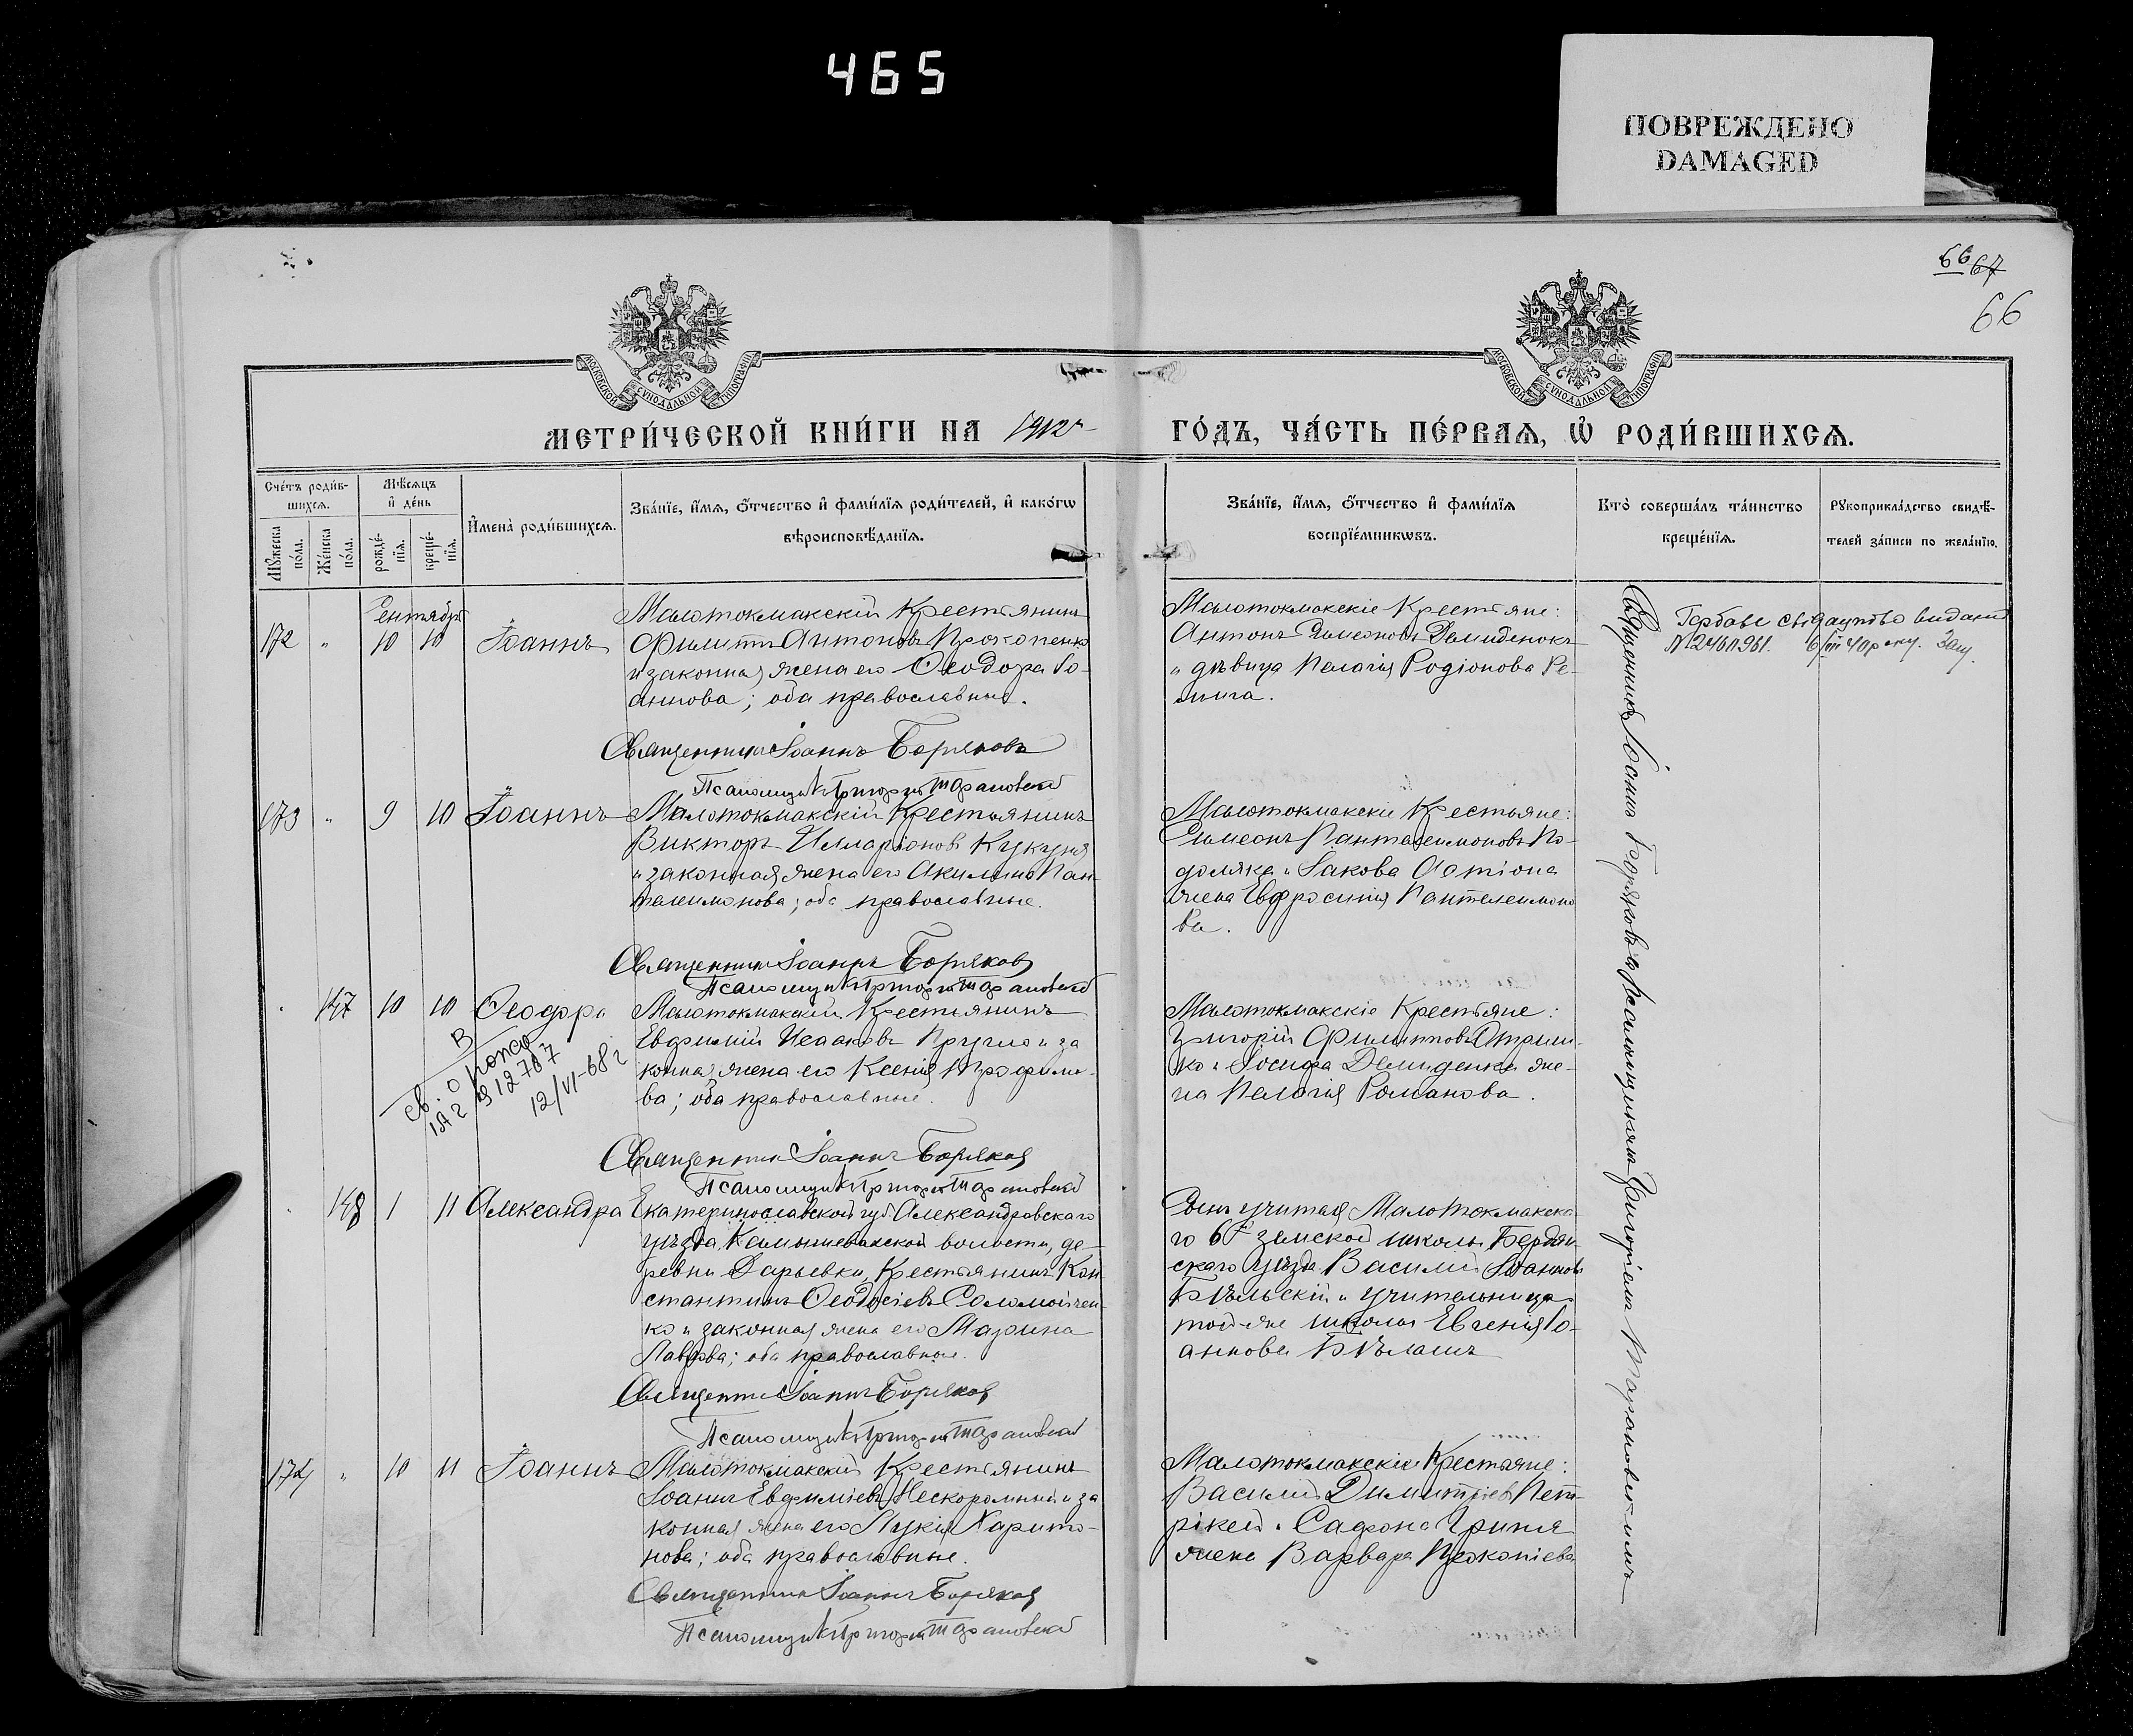 465
ПОВРЕЖДЕНО
DAMAGED
66 67
66
МОСКОВСКОЙ СѴНОДАЛЬНОЙ ТИПОГРАФІИ
МОСКОВСКОЙ СѴНОДАЛЬНОЙ ТИПОГРАФІИ
МЕТРИ́ЧЕСКОЙ КНИ́ГИ НА 1912 ГО́ДЪ, ЧА́СТЬ ПЕ́РВАѦ, Ѡ҆ РОДИ́ВШИХСѦ.
Сче́тъ роди́в-
шихсѧ.
Мꙋ́жеска по́ла.
Же́нска по́ла.
Мѣ́сѧцъ
и҆ де́нь
рожде́-нїѧ.
креще́-нїѧ.
И҆мена̀ роди́вшихсѧ.
Зва́нїе, и҆́мѧ, ѻ҆́тчество и҆ фами́лїѧ роди́телей, и҆ како́гѡ
вѣроисповѣ́данїѧ.
Зва́нїе, и҆́мѧ, ѻ҆́тчество и҆ фами́лїѧ
воспрїе́мникѡвъ.
Кто̀ соверша́лъ та́инство
креще́нїѧ.
Рꙋкоприкла́дство свидѣ́-
телей за́писи по жела́нїю.
Сентябрь
172 " 10 10 Іоаннъ
Малотокмакскій Крестьянинъ
Филиппъ Антоновъ Прокопенко
и законная жена его Ѳеодора Іо-
аннова; оба православные.
Священникъ Іоаннъ Боряковъ
Псаломщикъ Григорій Тарановскій
Малотокмакскіе Крестьяне:
Антонъ Симеоновъ Демиденокъ
и дѣвица Пелагія Родіонова Ре-
пига.
Гербове свідоцтво видано
№ 2460961. 6/III 40 року. Заг.
Священникъ Іоаннъ Боряковъ съ Псаломщикомъ Григоріемъ Тарановскимъ
173 " 9 10 Іоаннъ
Малотокмакскій Крестьянинъ
Викторъ Илларіоновъ Кукуня
и законная жена его Акилина Пан-
телеимонова; оба православные.
Священникъ Іоаннъ Боряковъ
Псаломщикъ Григорій Тарановскій
Малотокмакскіе Крестьяне:
Симеонъ Пантелеимоновъ По-
доляка и Іакова
жена Евфросинія Пантелеимоно
ва.
147 10 10 Ѳеодора
В
св. о
312707
12/VI-68 г
Малотокмакскій Крестьянинъ
Евфимій Исааковъ и за
конная жена его Ксенія Трофимо-
ва; оба православные.
Священникъ Іоаннъ Боряковъ
Псаломщикъ Григорій Тарановскій
Малотокмакскіе Крестьяне:
Григорій Филипповъ
ко и Іосифа Демиденка же-
на Пелагія Романова.
148 1 11 Александра
Екатеринославской губ. Александровскаго
уѣзда, Камышевахской волости, де-
ревни Дарьевки, Крестьянинъ Кон-
стантинъ Ѳеодосіевъ Соломойчен-
ко и законная жена его Марина
Лаврова; оба православные.
Священникъ Іоаннъ Боряковъ
Псаломщикъ Григорій Тарановскій
Сынъ учителя Малотокмакска-
го 6й земской школы Бердян-
скаго уѣзда Василій Іоанновъ
Бѣльскій и учительница
той-же школы Евгенія Іо-
аннова Бѣлашъ
174 " 10 11 Іоаннъ
Малотокмакскій Крестьянинъ
Іоаннъ Евфиміевъ Нескоромный и за
конная жена его Лукія Харито-
нова; оба православные.
Священникъ Іоаннъ Боряковъ
Псаломщикъ Григорій Тарановскій
Малотокмакскіе Крестьяне:
Василій Димитріевъ Пет-
рікей и Сафона Гриня
жена Варвара Прокопіева